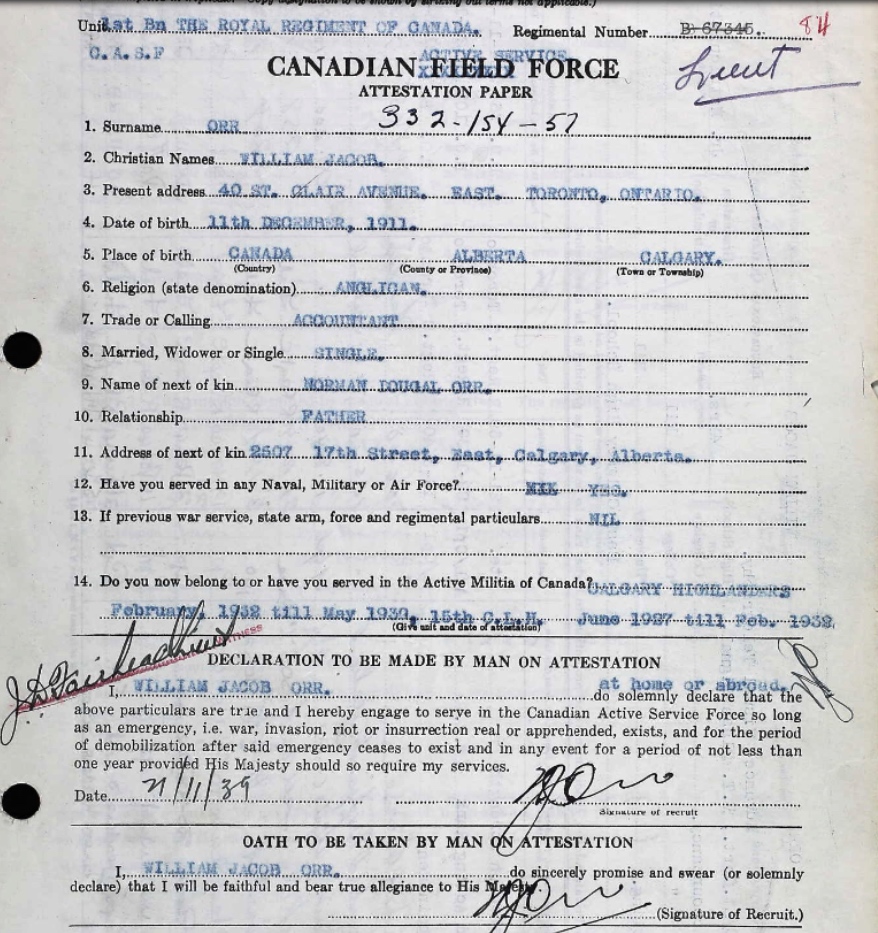 Unit 1st Bn THE ROYAL REGIMENT OF CANADA. Regimental Number B 67345. 84
C. A. S. F ACTIVE SERVICE
CANADIAN FIELD FORCE
ATTESTATION PAPER
332-154-57
1. Surname ORR
2. Christian Names WILLIAM JACOB.
3. Present address 40 ST. CLAIR AVENUE. EAST. TORONTO, ONTARIO.
4. Date of birth 11th DECEMBER, 1911.
5. Place of birth CANADA ALBERTA CALGARY.
(Country) (County or Province) (Town or Township)
6. Religion (state denomination) ANGLICAN.
7. Trade or Calling ACCOUNTANT
8. Married, Widower or Single SINGLE.
9. Name of next of kin NORMAN DOUGAL ORR.
10. Relationship FATHER
11. Address of next of kin 2507 17th Street, East, Calgary, Alberta.
12. Have you served in any Naval, Military or Air Force? NIL YES.
13. If previous war service, state arm, force and regimental particulars NIL
14. Do you now belong to or have you served in the Active Militia of Canada? CALGARY HIGHLANDERS
February, 1932 till May 1939, 15th C.L.H. June 1927 till Feb. 1932.
(Give unit and date of attestation)
WITNESS
DECLARATION TO BE MADE BY MAN ON ATTESTATION
at home or abroad.
I, WILLIAM JACOB ORR. do solemnly declare that the
above particulars are true and I hereby engage to serve in the Canadian Active Service Force so long
as an emergency, i.e. war, invasion, riot or insurrection real or apprehended, exists, and for the period
of demobilization after said emergency ceases to exist and in any event for a period of not less than
one year provided His Majesty should so require my services.
Date 21/11/39
Signature of recruit
OATH TO BE TAKEN BY MAN ON ATTESTATION
I, WILLIAM JACOB ORR. do sincerely promise and swear (or solemnly
declare) that I will be faithful and bear true allegiance to His Majesty.
(Signature of Recruit.)